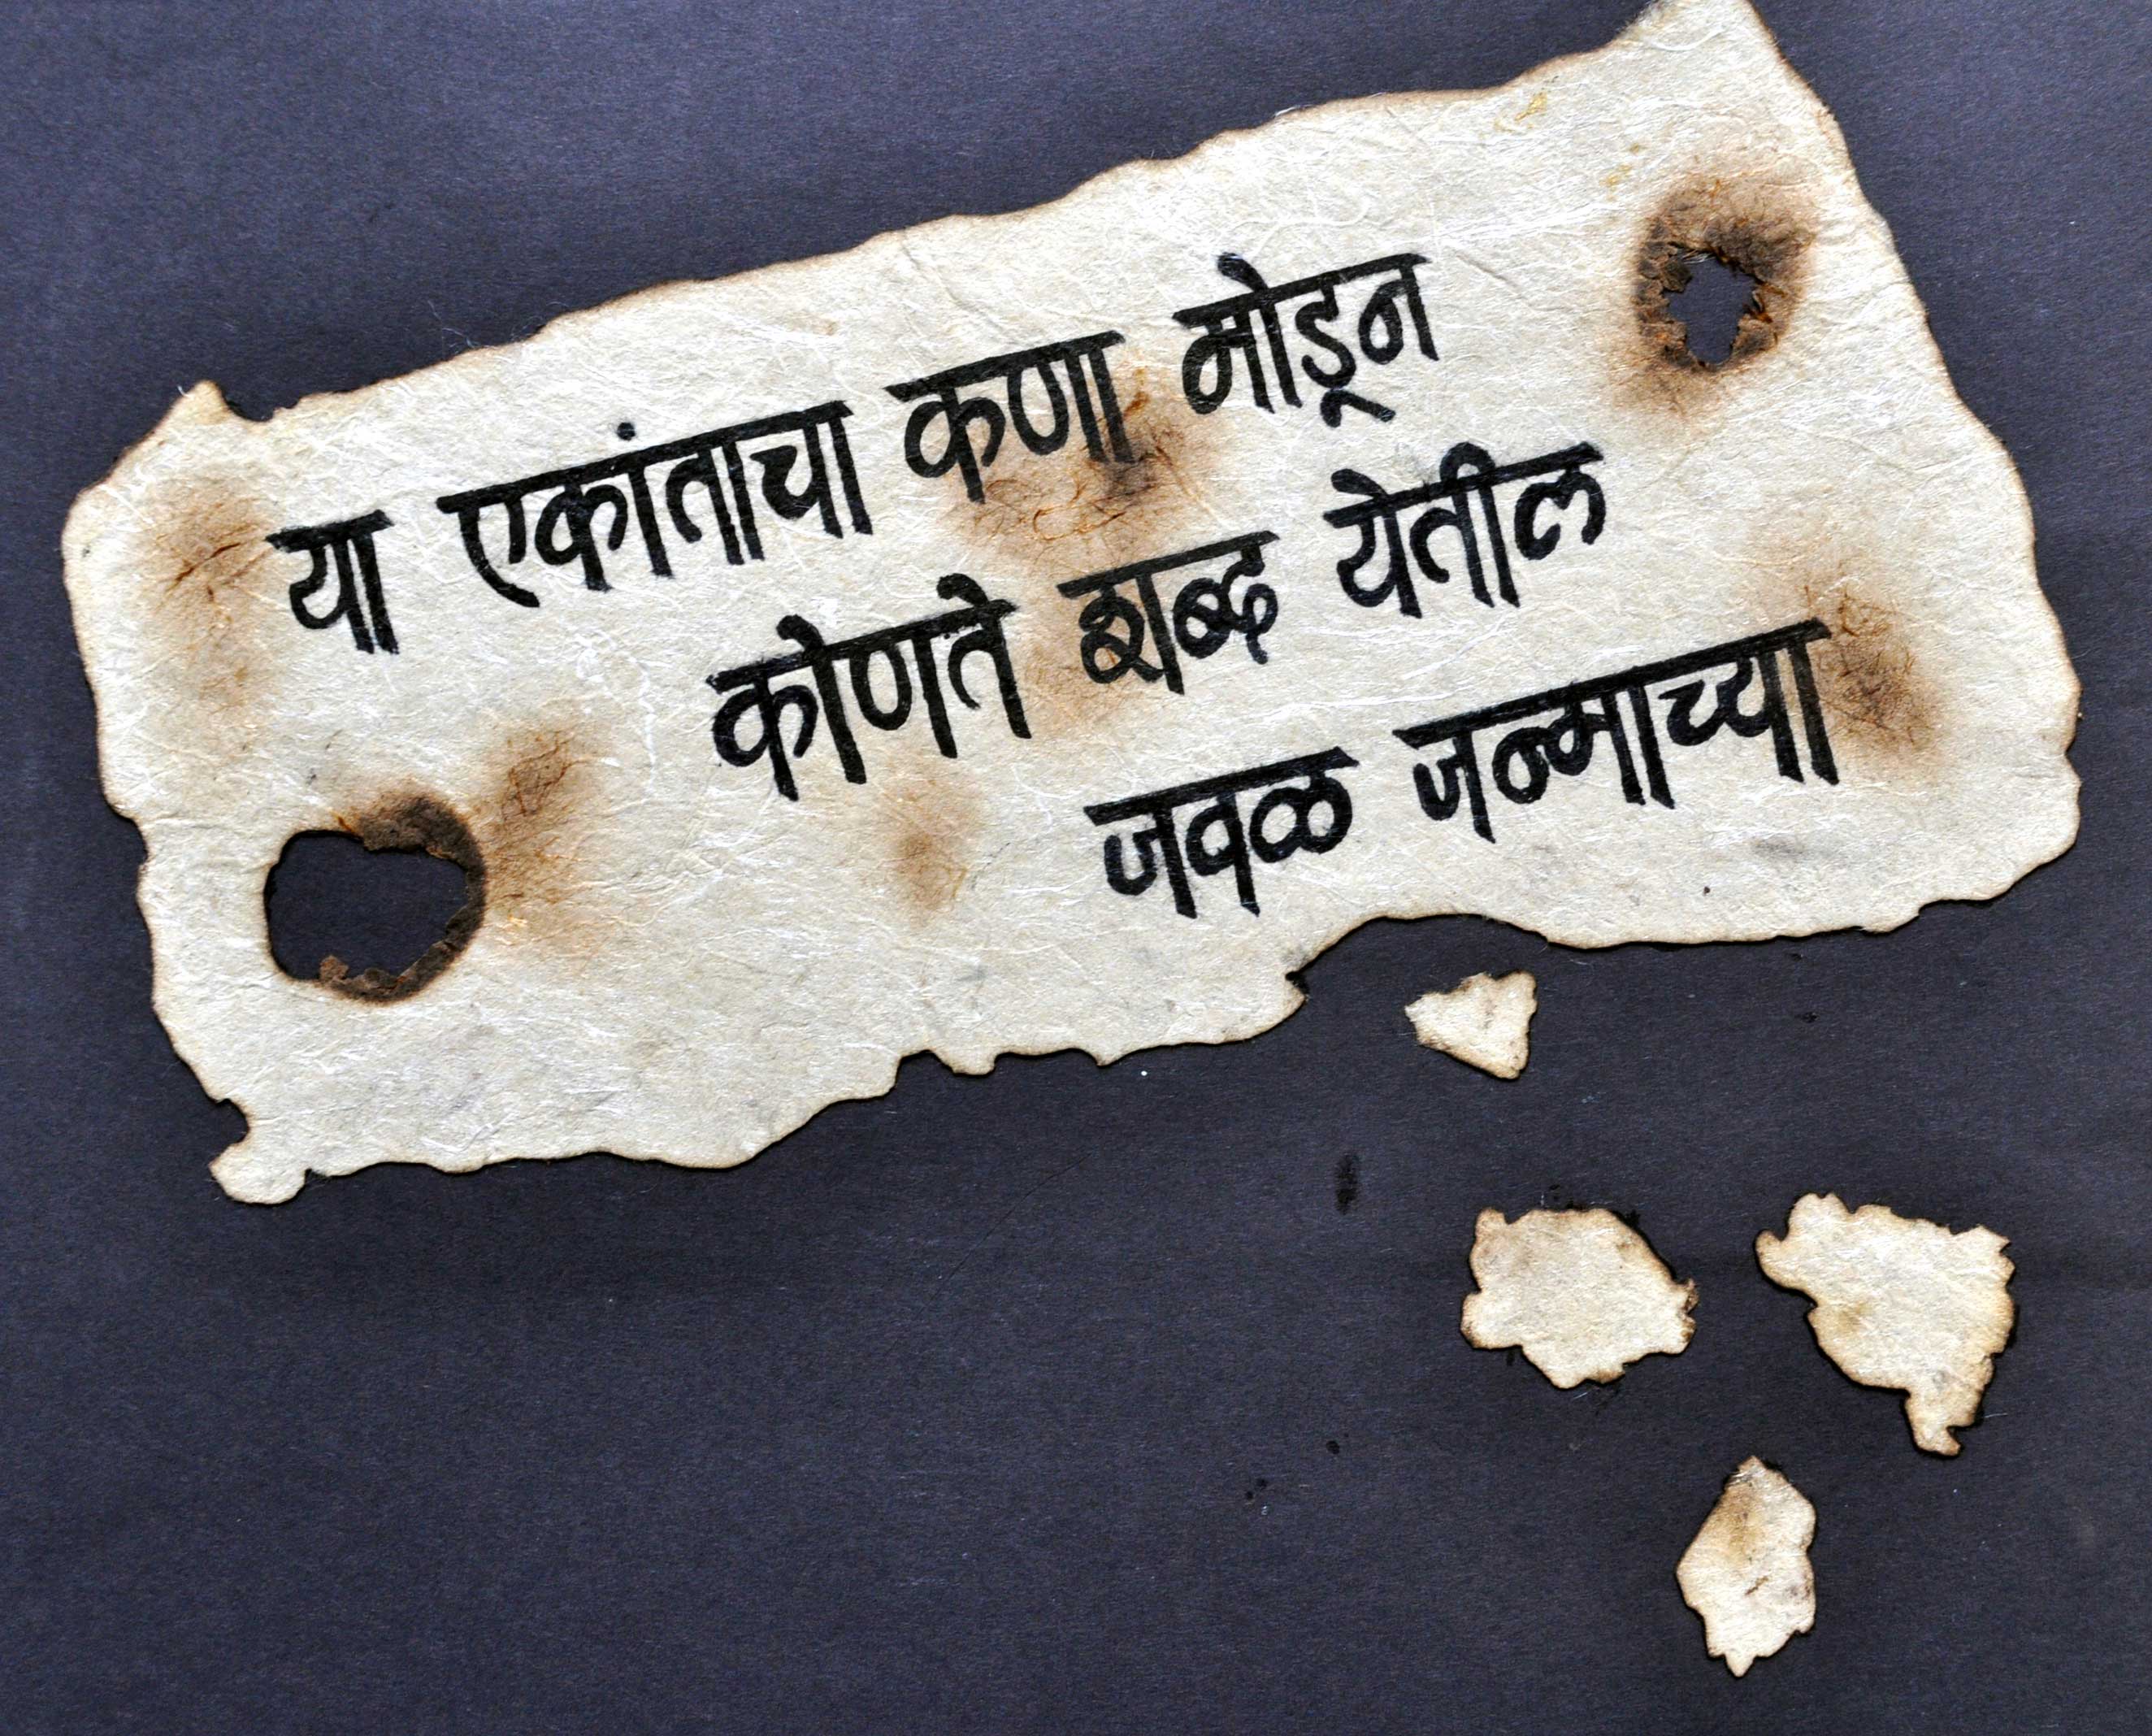 या एकांताचा कणा मोडून
कोणते शब्द येतील
जवळ जन्माच्या